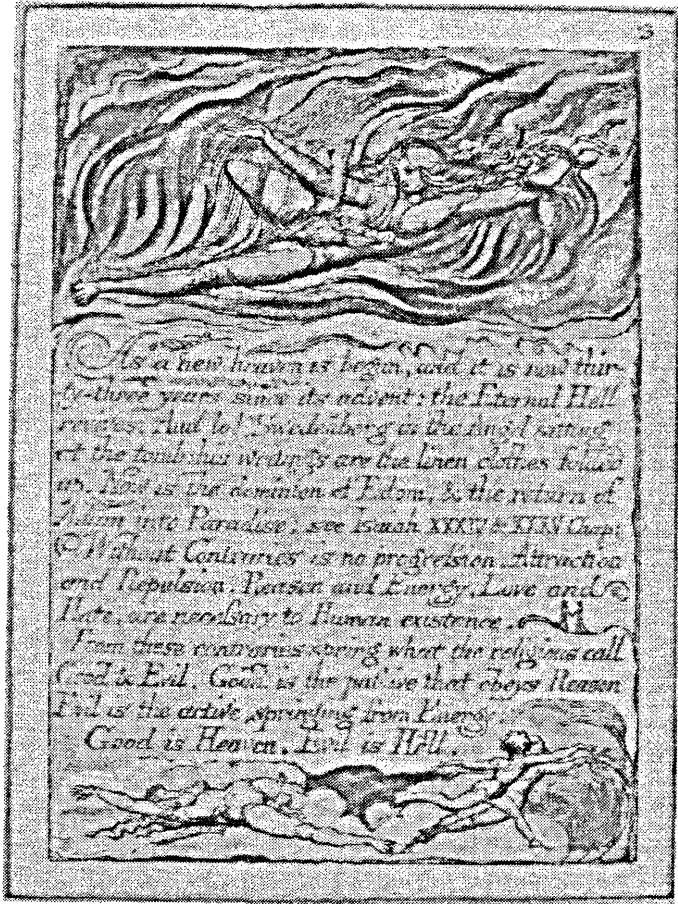 3
As a new heaven is begun, and it is now thir-
ty-three years since its advent: the Eternal Hell
revives. And lo! Swedenborg is the Angel sitting
at the tomb: his writings are the linen clothes folded
up. Now is the dominion of Edom, & the return of
Adam into Paradise; see Isaiah XXXIV & XXXV Chap:
Without Contraries is no progreſsion. Attraction
and Repulsion, Reason and Energy, Love and
Hate, are neceſsary to Human existence.
From these contraries spring what the religious call
Good & Evil. Good is the paſsive that obeys Reason
Evil is the active springing from Energy.
Good is Heaven. Evil is Hell.